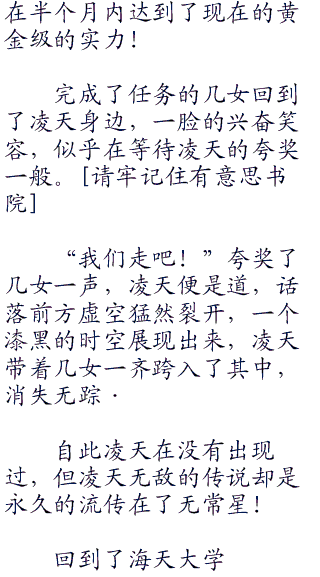 在半个月内达到了现在的黄
金级的实力！
完成了任务的几女回到
了凌天身边，一脸的兴奋笑
容，似乎在等待凌天的夸奖
一般。[请牢记住有意思书
院]
“我们走吧！”夸奖了
几女一声，凌天便是道，话
落前方虚空猛然裂开，一个
漆黑的时空展现出来，凌天
带着几女一齐跨入了其中，
消失无踪·
自此凌天在没有出现
过，但凌天无敌的传说却是
永久的流传在了无常星！
回到了海天大学